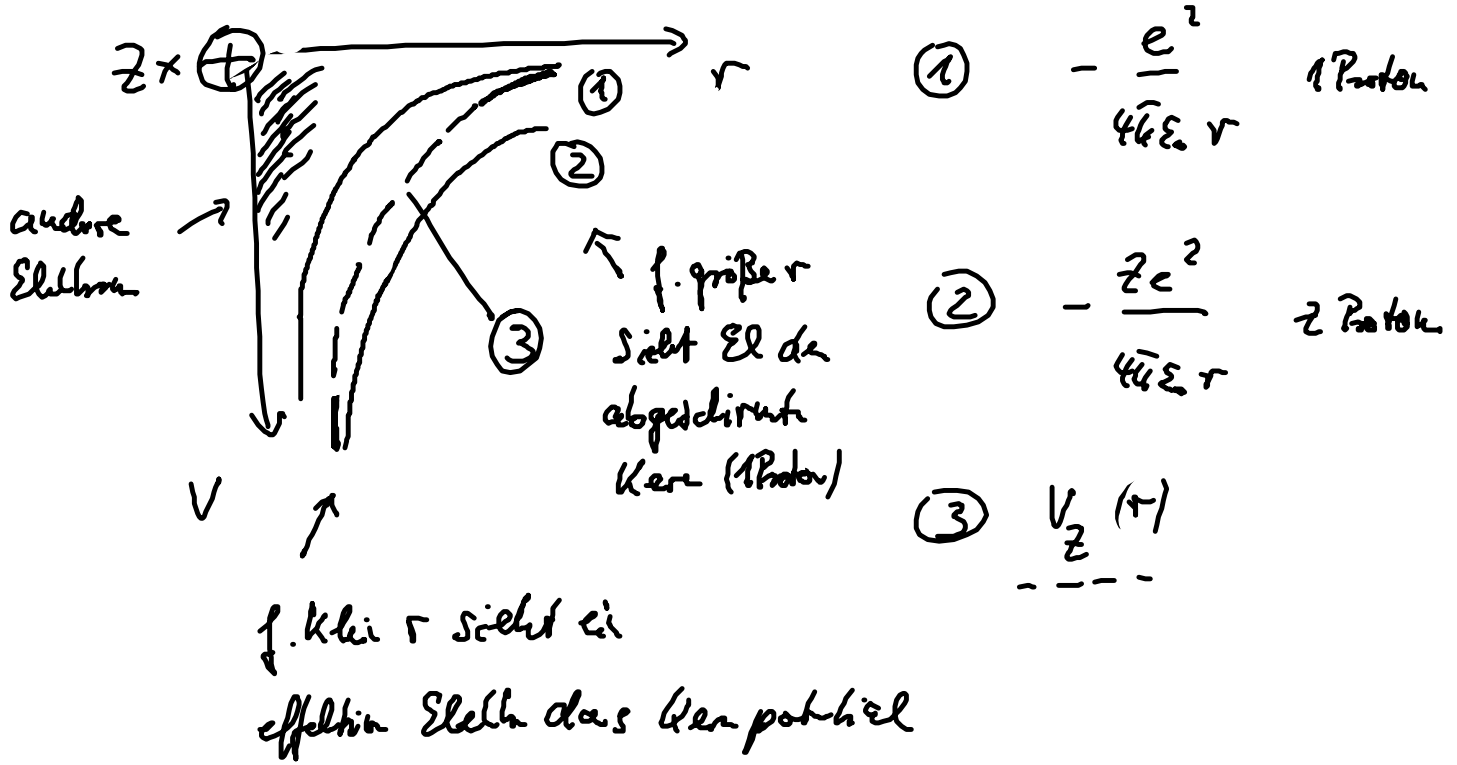 Z × +
r
①
②
③
V
andere
Elektronen
f. große r
sieht El den
abgeschirmten
Kern (1 Proton)
f. kleine r sieht ein
effektiv Elektron das Kernpotential
① - e² / 4πε₀ r 1 Proton
② - Ze² / 4πε₀ r Z Protonen
③ V_Z (r)